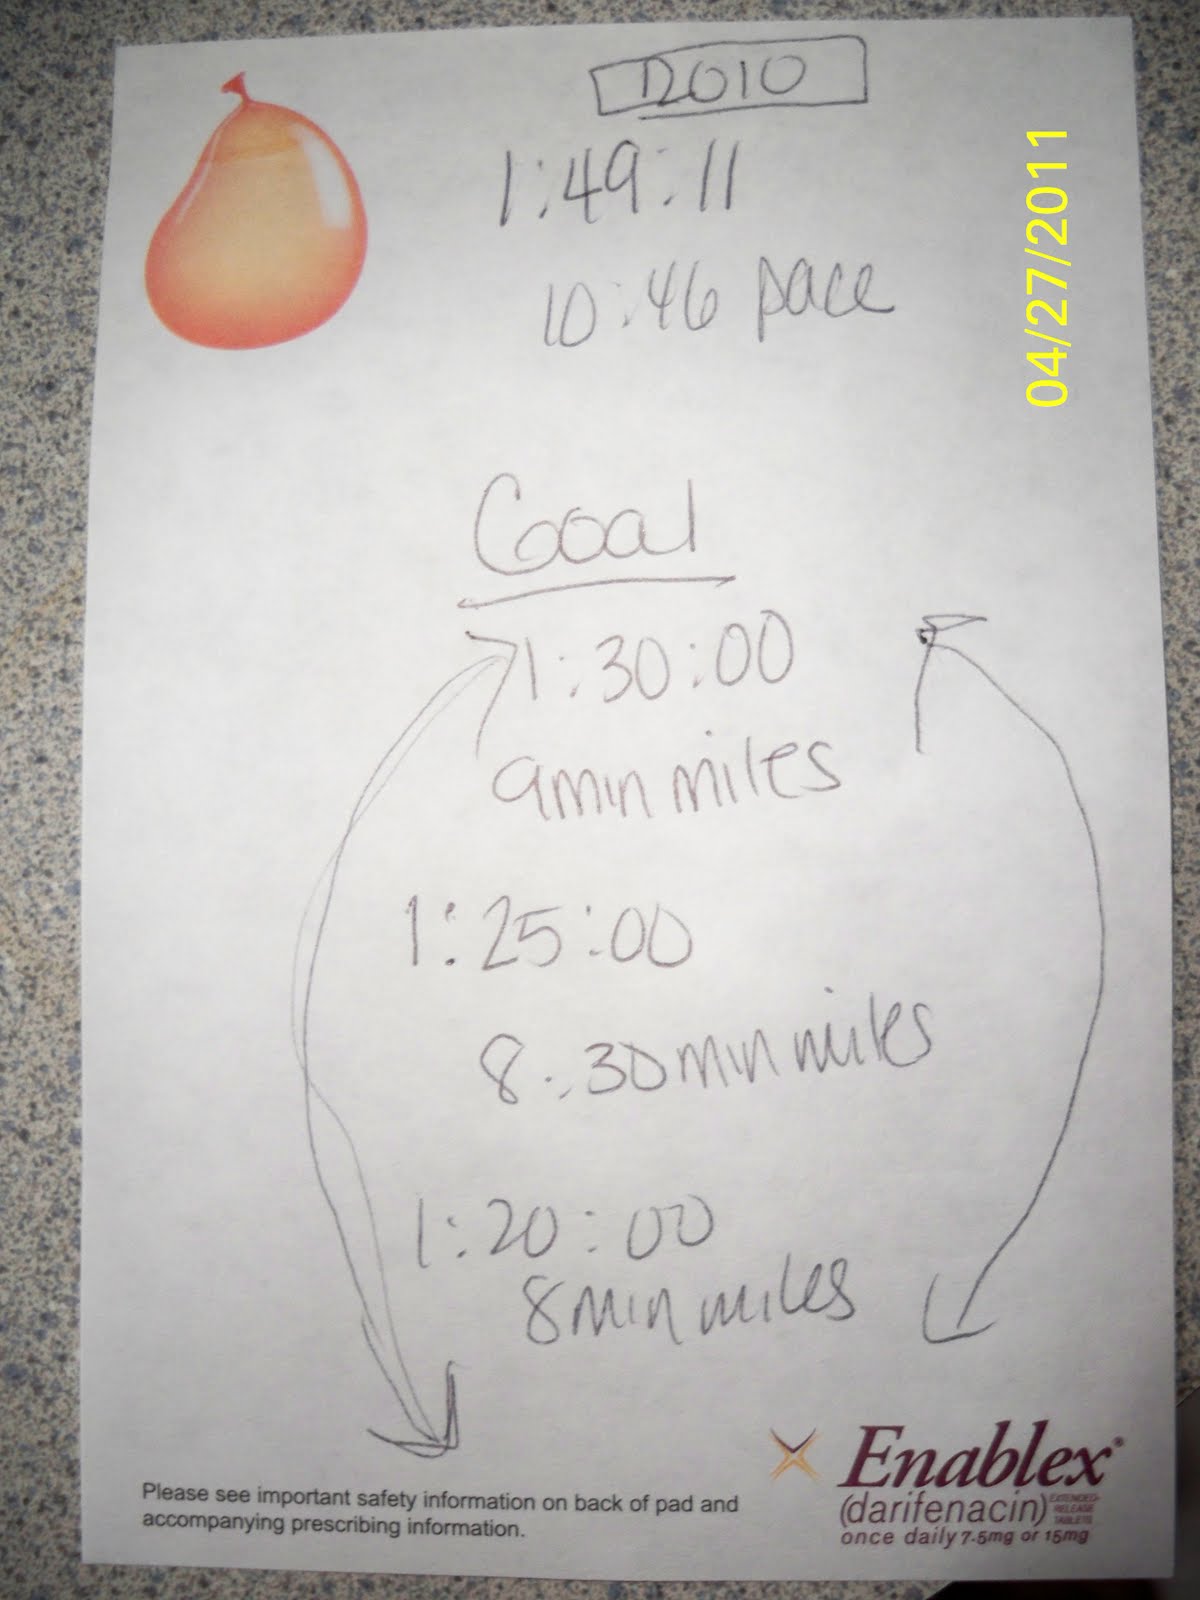 2010
1:49:11
10:46 pace
04/27/2011
Goal
1:30:00
9min miles
1:25:00
8:30min miles
1:20:00
8min miles
Enablex®
(darifenacin) EXTENDED-
RELEASE
TABLETS
once daily 7.5mg or 15mg
Please see important safety information on back of pad and
accompanying prescribing information.